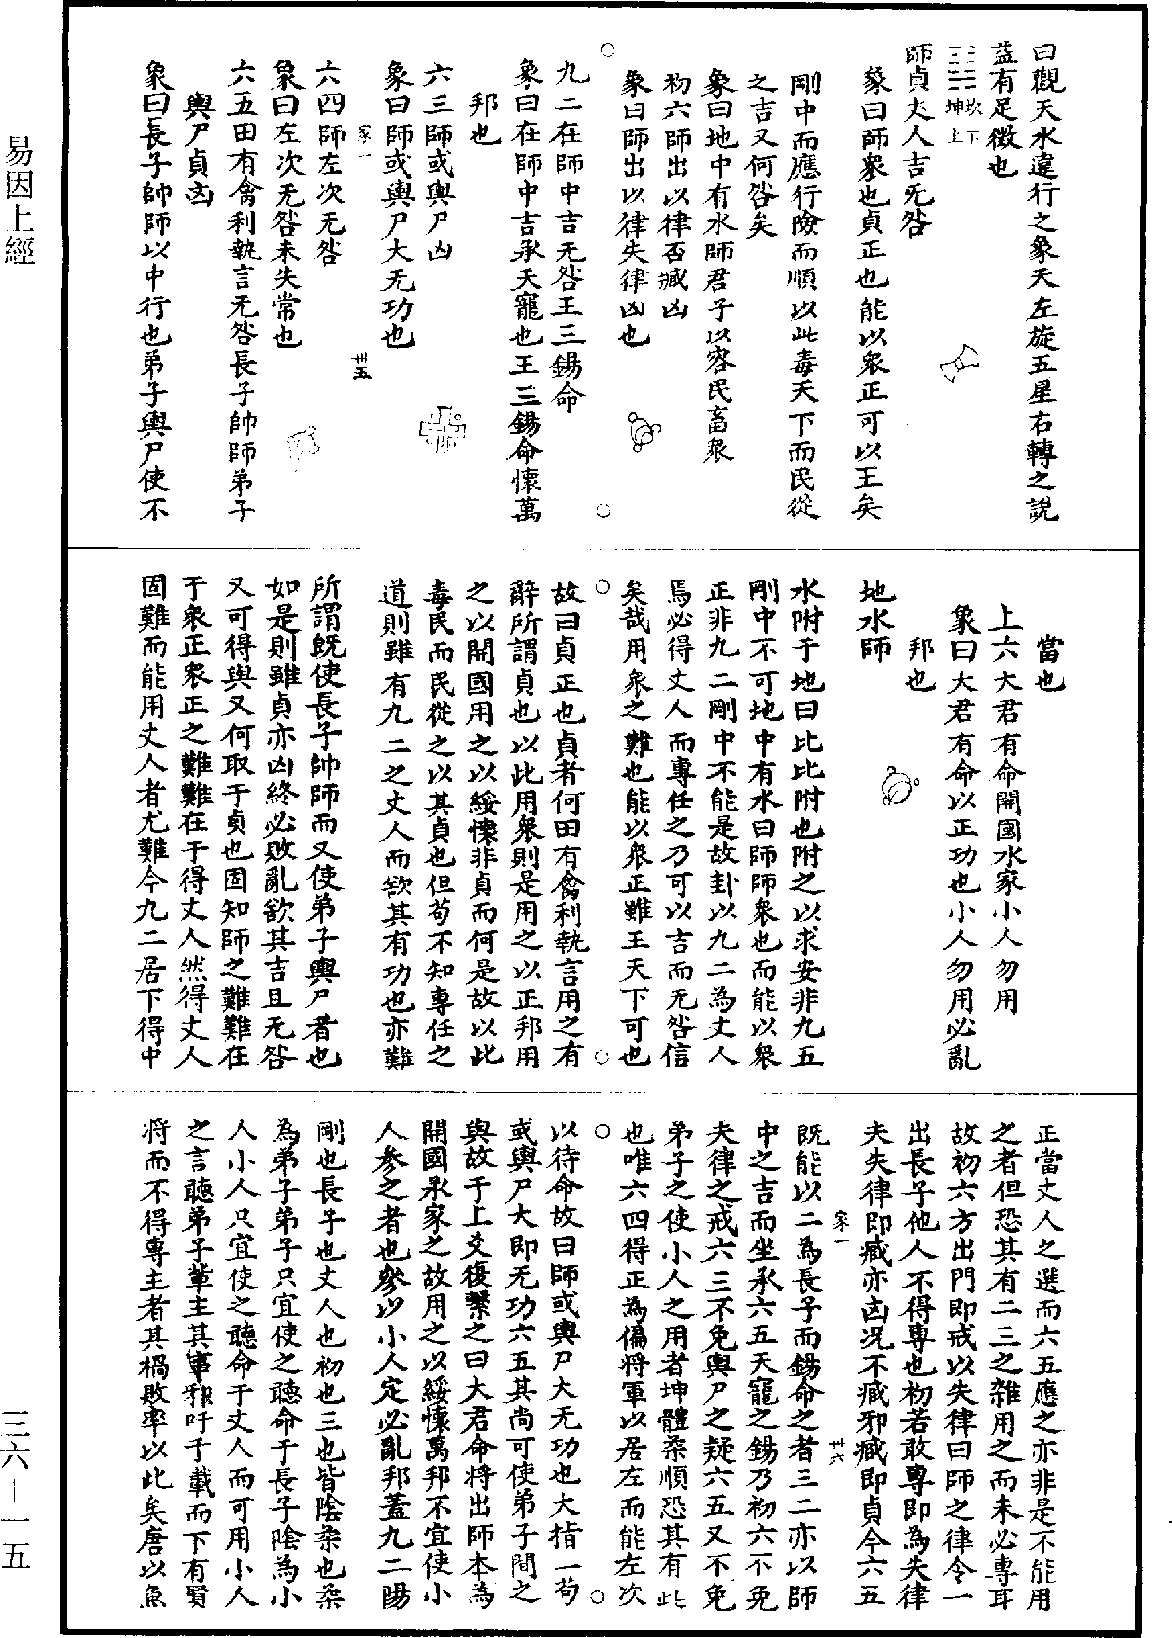 易因上經
三六—一五
曰觀天水違行之象天左旋五星右轉之說
益有足徵也
☷☵坎下坤上
師貞丈人吉无咎
彖曰師衆也貞正也能以衆正可以王矣
剛中而應行險而順以此毒天下而民從
之吉又何咎矣
象曰地中有水師君子以容民畜衆
初六師出以律否臧凶
象曰師出以律失律凶也
九二在師中吉无咎王三錫命
象曰在師中吉承天寵也王三錫命懷萬
邦也
六三師或輿尸凶
象曰師或輿尸大无功也
家一
卅五
六四師左次无咎
象曰左次无咎未失常也
六五田有禽利執言无咎長子帥師弟子
輿尸貞凶
象曰長子帥師以中行也弟子輿尸使不
當也
上六大君有命開國承家小人勿用
象曰大君有命以正功也小人勿用必亂
邦也
地水師
水附于地曰比比附也附之以求安非九五
剛中不可地中有水曰師師衆也而能以衆
正非九二剛中不能是故卦以九二為丈人
焉必得丈人而專任之乃可以吉而无咎信
矣哉用衆之難也能以衆正雖王天下可也
故曰貞正也貞者何田有禽利執言用之有
辭所謂貞也以此用衆則是用之以正邦用
之以開國用之以綏懷非貞而何是故以此
毒民而民從之以其貞也但苟不知專任之
道則雖有九二之丈人而欲其有功也亦難
所謂既使長子帥師而又使弟子輿尸者也
如是則雖貞亦凶終必敗亂欲其吉且无咎
又可得與又何取于貞也固知師之難難在
于衆正衆正之難難在于得丈人然得丈人
固難而能用丈人者尤難今九二居下得中
正當丈人之選而六五應之亦非是不能用
之者但恐其有二三之雜用之而未必專耳
故初六方出門即戒以失律曰師之律令一
出長子他人不得專也初若敢專即為失律
夫失律即臧亦凶况不臧邪臧即貞今六五
家一
卅六
既能以二為長子而錫命之者三二亦以師
中之吉而坐承六五天寵之錫乃初六不免
夫律之戒六三不免輿尸之疑六五又不免
弟子之使小人之用者坤體柔順恐其有此
也唯六四得正為偏將軍以居左而能左次
以待命故曰師或輿尸大无功也大指一苟
或輿尸大即无功六五其尚可使弟子間之
與故于上爻復繫之曰大君命將出師本為
開國承家之故用之以綏懷萬邦不宜使小
人參之者也參以小人定必亂邦蓋九二陽
剛也長子也丈人也初也三也皆陰柔也柔
為弟子弟子只宜使之聽命于長子陰為小
人小人只宜使之聽命于丈人而可用小人
之言聽弟子輩主其事邪吁千載而下有賢
將而不得專主者其禍敗率以此矣唐以魚